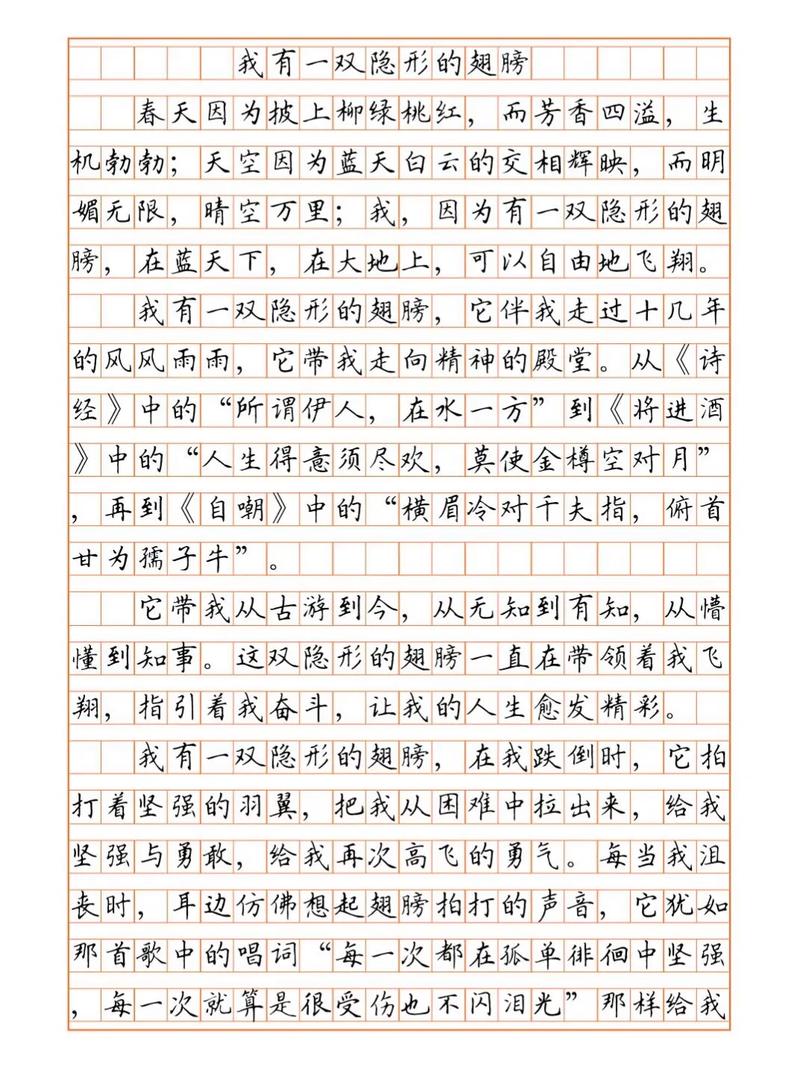 我有一双隐形的翅膀
春天因为披上柳绿桃红，而芳香四溢，生
机勃勃；天空因为蓝天白云的交相辉映，而明
媚无限，晴空万里；我，因为有一双隐形的翅
膀，在蓝天下，在大地上，可以自由地飞翔。
我有一双隐形的翅膀，它伴我走过十几年
的风风雨雨，它带我走向精神的殿堂。从《诗
经》中的“所谓伊人，在水一方”到《将进酒
》中的“人生得意须尽欢，莫使金樽空对月”
，再到《自嘲》中的“横眉冷对千夫指，俯首
甘为孺子牛”。
它带我从古游到今，从无知到有知，从懵
懂到知事。这双隐形的翅膀一直在带领着我飞
翔，指引着我奋斗，让我的人生愈发精彩。
我有一双隐形的翅膀，在我跌倒时，它拍
打着坚强的羽翼，把我从困难中拉出来，给我
坚强与勇敢，给我再次高飞的勇气。每当我沮
丧时，耳边仿佛想起翅膀拍打的声音，它犹如
那首歌中的唱词“每一次都在孤单徘徊中坚强
，每一次就算是很受伤也不闪泪光”那样给我